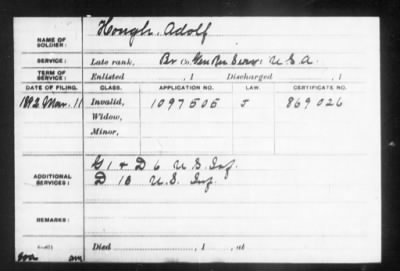 NAME OF SOLDIER: Hough, Adolf
SERVICE: Late rank, Co. Gen Mt Serv U S A.
TERM OF SERVICE: Enlisted , 1 Discharged , 1
DATE OF FILING. CLASS. APPLICATION NO. LAW. CERTIFICATE NO.
1892 Mar. 11 Invalid, 1097505 J 869026
Widow,
Minor,
G 1 & D 6 U.S. Inf.
ADDITIONAL SERVICES: D 18 U.S. Inf.
REMARKS:
Died , 1 , at